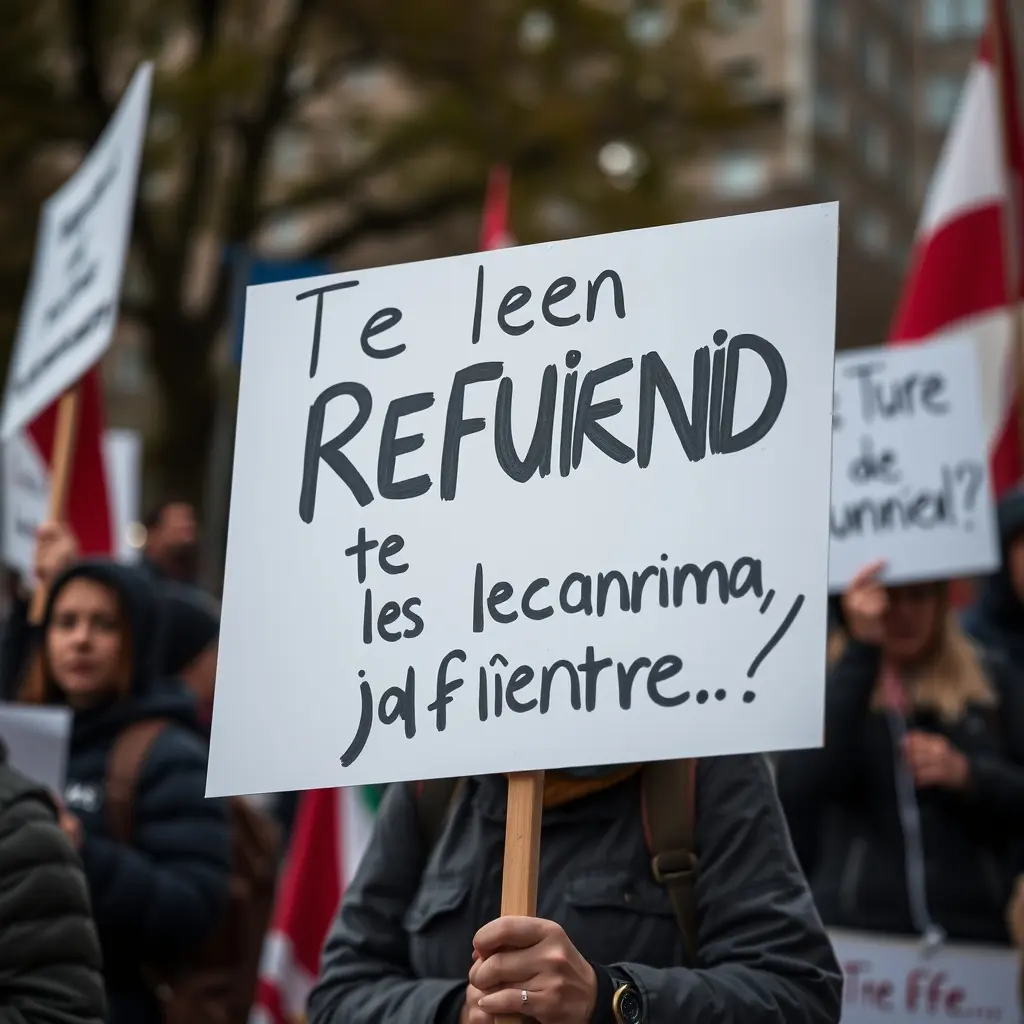 Te leen
REFUIENID
te
les lecanrima,
jdflîentre...!
e Ture
de
unnied?
Tre Ffe...